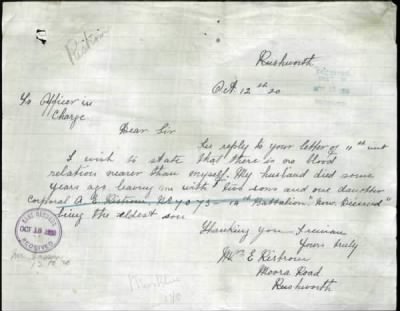 Rushworth
Oct. 12th 20
To Officer in
Charge
Dear Sir
In reply to your letter of 11th inst
I wish to state that there is no blood
relation nearer than myself. My husband died some
years ago leaving me with two sons and one daughter
Corporal A E Risbrow No 7073 14th Battalion "Now Deceased"
being the eldest son
Thanking you I remain
Yours truly
Mrs E Risbrow
Moora Road
Rushworth
BASE RECORDS
OCT 18 1920
RECEIVED